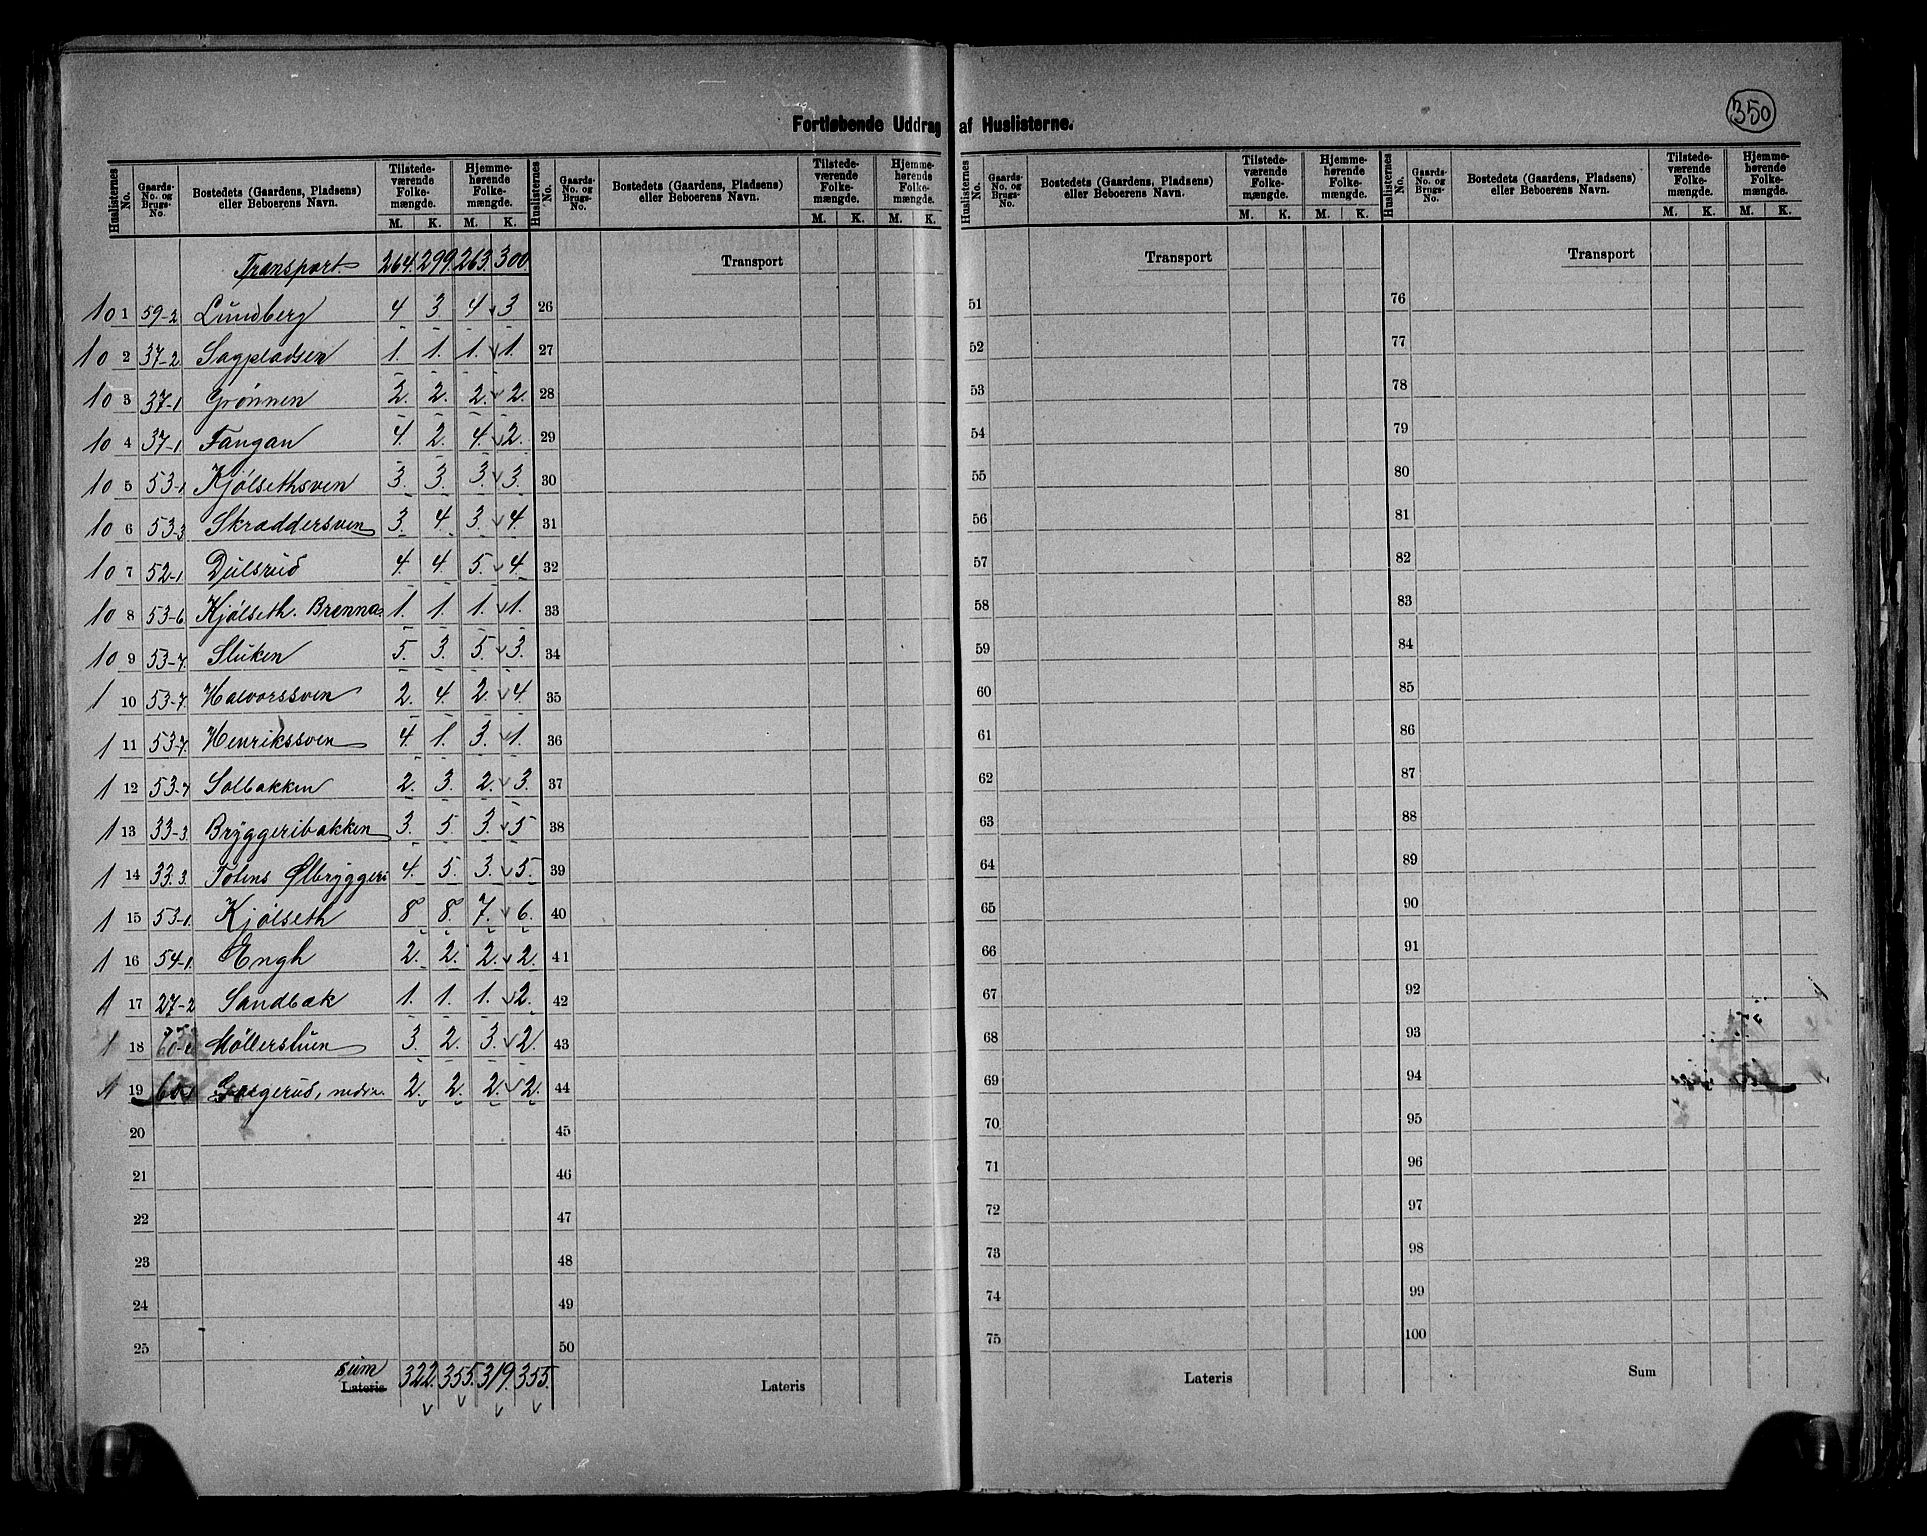 350
Fortløbende Uddrag af Huslisterne.
Huslisternes No. | Gaards-No. og Brugs-No. | Bostedets (Gaardens, Pladsens) eller Beboerens Navn. | Tilstedeværende Folkemængde. M. K. | Hjemmehørende Folkemængde. M. K.
Huslisternes No. | Gaards-No. og Brugs-No. | Bostedets (Gaardens, Pladsens) eller Beboerens Navn. | Tilstedeværende Folkemængde. M. K. | Hjemmehørende Folkemængde. M. K.
Huslisternes No. | Gaards-No. og Brugs-No. | Bostedets (Gaardens, Pladsens) eller Beboerens Navn. | Tilstedeværende Folkemængde. M. K. | Hjemmehørende Folkemængde. M. K.
Huslisternes No. | Gaards-No. og Brugs-No. | Bostedets (Gaardens, Pladsens) eller Beboerens Navn. | Tilstedeværende Folkemængde. M. K. | Hjemmehørende Folkemængde. M. K.
Transport. 264. 299. 263. 300. Transport Transport Transport
10 1 59-2 Lundberg 4 3. 4. 3. 26 51 76
10 2 37-2 Sagpladsen 1. 1. 1. 1. 27 52 77
10 3 37-1 Grønnen 2. 2. 2. 2. 28 53 78
10 4 37-1 Fangan 4. 2. 4. 2. 29 54 79
10 5 53-1 Kjølsethsven 3. 3. 3. 3. 30 55 80
10 6 53-3 Skræddersven 3. 4. 3. 4. 31 56 81
10 7 52-1 Dulsrud 4. 4. 5. 4. 32 57 82
10 8 53-6 Kjølseth. Brenna. 1. 1. 1. 1. 33 58 83
10 9 53-7. Sluken 5. 3. 5. 3. 34 59 84
1 10 53-7. Halvorssven 2. 4. 2. 4 35 60 85
1 11 53-7. Henrikssven 4. 1. 3. 1. 36 61 86
1 12 53-7 Solbakken 2. 3. 2. 3. 37 62 87
1 13 33-3. Bryggeribakken 3. 5. 3. 5 38 63 88
1 14 33.3. Totens Ølbryggeri 4. 5. 3. 5. 39 64 89
1 15 53-1. Kjølseth 8 8. 7. 6. 40 65 90
1 16 54-1. Engh 2. 2. 2. 2. 41 66 91
1 17 27-2 Sandbæk 1. 1. 1. 2. 42 67 92
1 18 Møllerstuen 3. 2. 3. 2. 43 68 93
1 19 nedre. 2. 2. 2. 2. 44 69 94
20 45 70 95
21 46 71 96
22 47 72 97
23 48 73 98
24 49 74 99
25 50 75 100
sum Lateris 322. 355. 319. 355. Lateris Lateris Sum